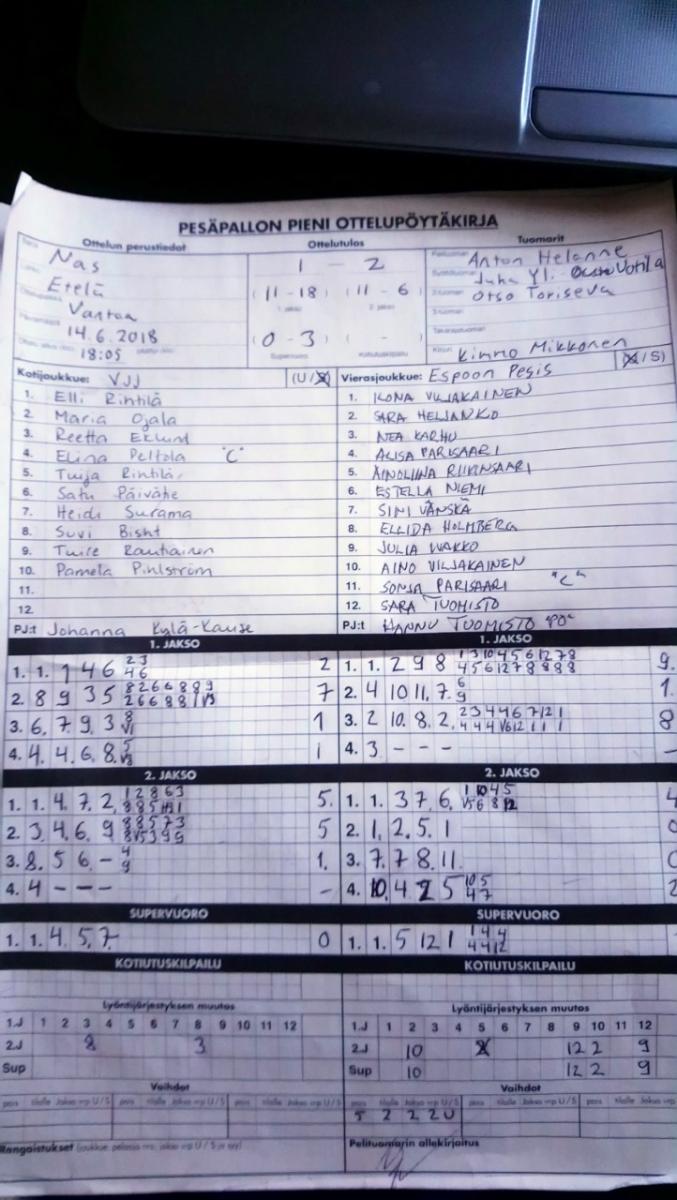 PESÄPALLON PIENI OTTELUPÖYTÄKIRJA
Ottelun perustiedot Ottelutulos Tuomarit
Nas 1 - 2 Anton Helanne
Etelä (11 - 18) (11 - 6) Juha Yli-
Vantaa 1. jakso 2. jakso Otso Toriseva
14.6.2018 (0 - 3) ( - )
18:05 Supervuoro Kotiutuskilpailu Kimmo Mikkonen
Kotijoukkue: VJJ (U/S) Vierasjoukkue: Espoon Pesis (U/S)
1. Elli Rintilä 1. ILONA VILJAKAINEN
2. Maria Ojala 2. SARA HELJANKO
3. Reetta Eklund 3. NEA KARHU
4. Elina Peltola "C" 4. ALISA PARISAARI
5. Tuija Rintilä 5. AINOLIINA RIIKINSAARI
6. Satu Päivähe 6. ESTELLA NIEMI
7. Heidi Surama 7. SINI VÄNSKÄ
8. Suvi Bisht 8. ELLIDA HOLMBERG
9. Tuire Rautiainen 9. JULIA WAKKO
10. Pamela Pihlström 10. AINO VILJAKAINEN
11. 11. SONJA PARISAARI "C"
12. 12. SARA TUOMISTO
PJ:t Johanna Kylä-Kause PJ:t HANNU TUOMISTO
1. JAKSO 1. JAKSO
1. 1. 1 4 6 2 3 4 6 2 1. 1. 2 9 8 1 3 10 4 5 6 12 7 8 4 5 6 12 7 8 8 8 8 9.
2. 8 9 3 5 8 2 6 6 8 8 9 2 6 6 8 8 1 V3 7 2. 4 10 11. 7. 6 9 1.
3. 6. 7. 9. 3. 8 V1 1 3. 2 10. 8. 2. 2 3 4 4 6 7 12 1 4 4 4 V6 12 1 1 1 8
4. 4. 4. 6. 8. 5 V3 1 4. 3. - - - -
2. JAKSO 2. JAKSO
1. 1. 4. 7. 2. 1 2 8 6 3 5. 1. 1. 3 7 6. 1 10 4 5 V5 6 8 12 4
2. 3. 4. 6. 9 8 8 5 7 3 8 V5 3 9 9 5 2. 1, 2. 5. 1 0
3. 8. 5 6 - 4 9 1. 3. 7. 7 8. 11. 0
4. 4 - - - - 4. 10. 4 2 5 10 5 4 7 2
SUPERVUORO SUPERVUORO
1. 1. 4. 5. 7. 0 1. 1. 5 12 1 1 4 4 4 4 12
KOTIUTUSKILPAILU KOTIUTUSKILPAILU
Lyöntijärjestyksen muutos Lyöntijärjestyksen muutos
1.J 1 2 3 4 5 6 7 8 9 10 11 12 1.J 1 2 3 4 5 6 7 8 9 10 11 12
2.J 8 3 2.J 10 12 2 9
Sup Sup 10 12 2 9
Vaihdot Vaihdot
pois tilalle Jakso vrp U/S pois tilalle Jakso vrp U/S pois tilalle Jakso vrp U/S pois tilalle Jakso vrp U/S pois tilalle Jakso vrp U/S pois tilalle Jakso vrp
5 2 2 2 U
Rangaistukset (joukkue, pelaaja nro, jakso vrp U/S ja syy) Pelituomarin allekirjoitus